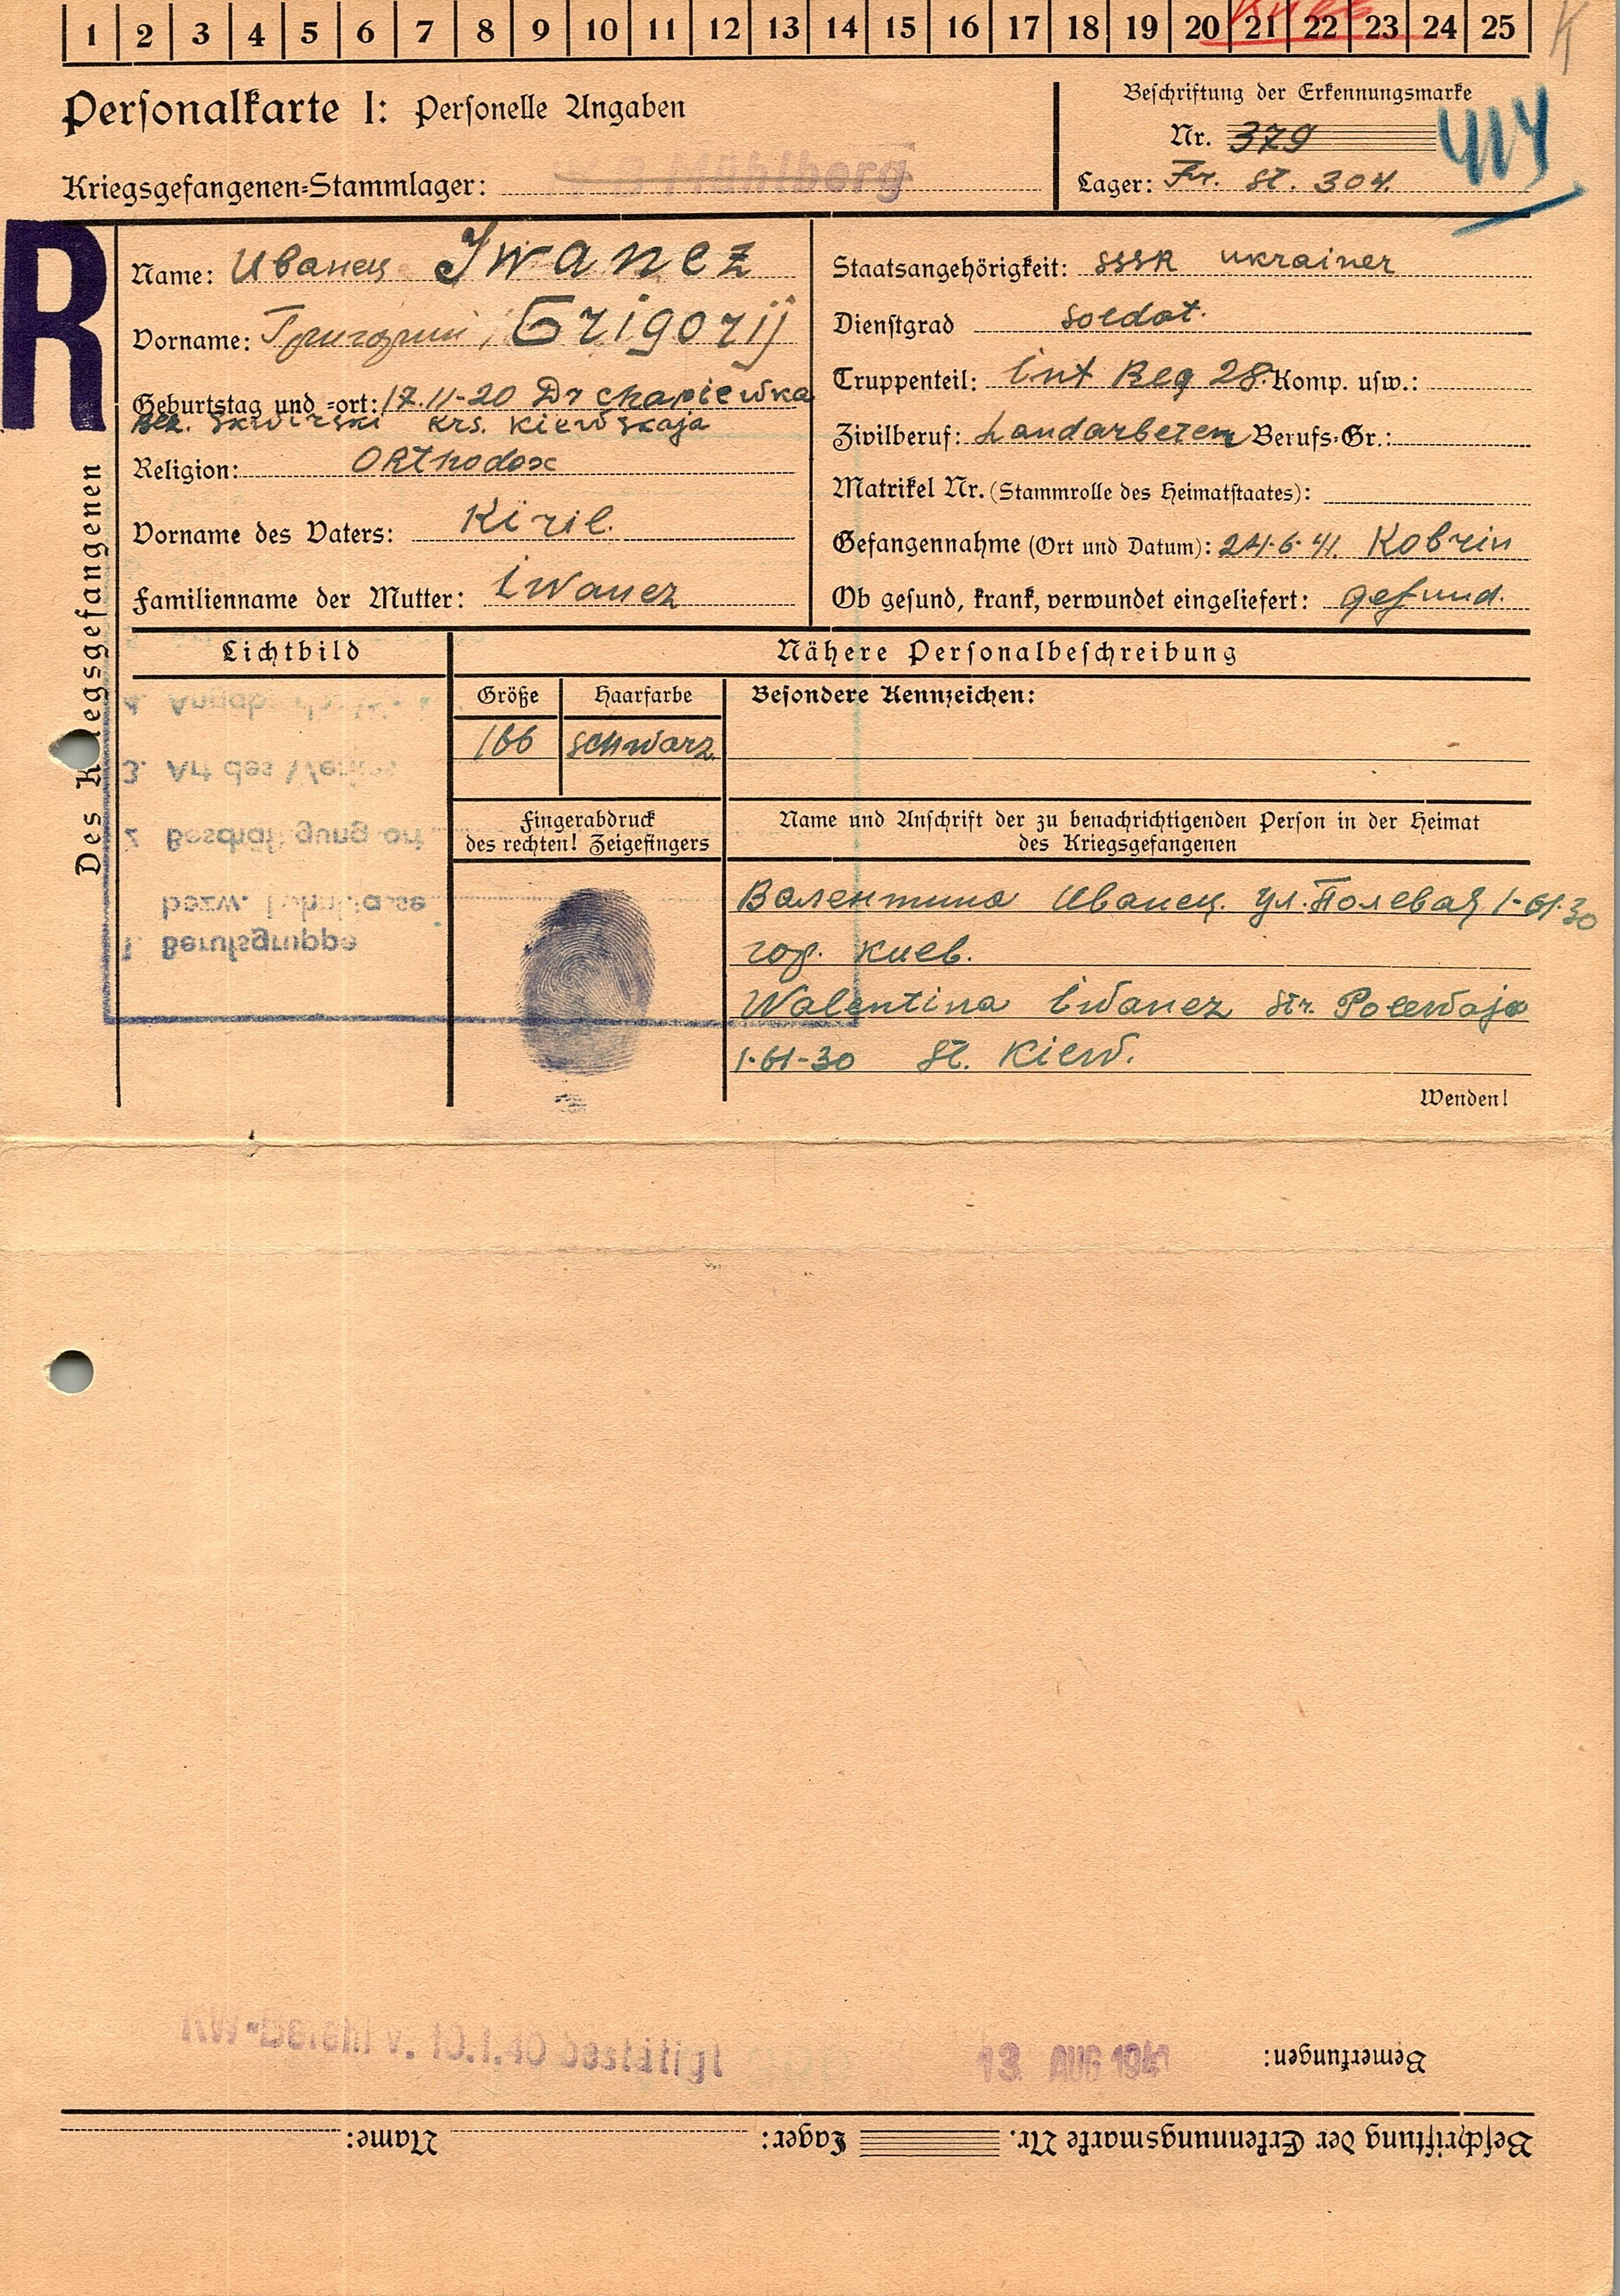 1 2 3 4 5 6 7 8 9 10 11 12 13 14 15 16 17 18 19 20 21 22 23 24 25
K
Personalkarte I: Personelle Angaben
Beschriftung der Erkennungsmarke
Nr. 379
Kriegsgefangenen-Stammlager: Mühlberg
Lager: Fr. St. 304.
R
Des Kriegsgefangenen
Name: Иванец Iwanez
Vorname: Григорий, Grigorij
Geburtstag und -ort: 17.11-20 Dr chapiewka
Bez. Skwirski Krs. Kiewskaja
Religion: Orthodox
Vorname des Vaters: Kiril.
Familienname der Mutter: Iwanez
Staatsangehörigkeit: SSSR ukrainer
Dienstgrad Soldat.
Truppenteil: Int Reg 28. Komp. usw.:
Zivilberuf: Landarbeter Berufs-Gr.:
Matrikel Nr. (Stammrolle des Heimatstaates):
Gefangennahme (Ort und Datum): 24.6.41. Kobrin
Ob gesund, krank, verwundet eingeliefert: gesund.
Lichtbild
Nähere Personalbeschreibung
Größe
Haarfarbe
Besondere Kennzeichen:
166 schwarz
Fingerabdruck
des rechten! Zeigefingers
Name und Anschrift der zu benachrichtigenden Person in der Heimat
des Kriegsgefangenen
Валентина Иванец. ул. Полевая 1-61-30
гор. Киев.
Walentina Iwanez Str. Polewaja
1-61-30 St. Kiew.
Wenden!
1. Berufsgruppe
bezw.
2. Beschäftigung
3. Art des
4.
KW-Befehl v. 10.1.40 bestätigt
13. AUG 1941
Bemerkungen:
Beschriftung der Erkennungsmarke Nr. Lager: Name: